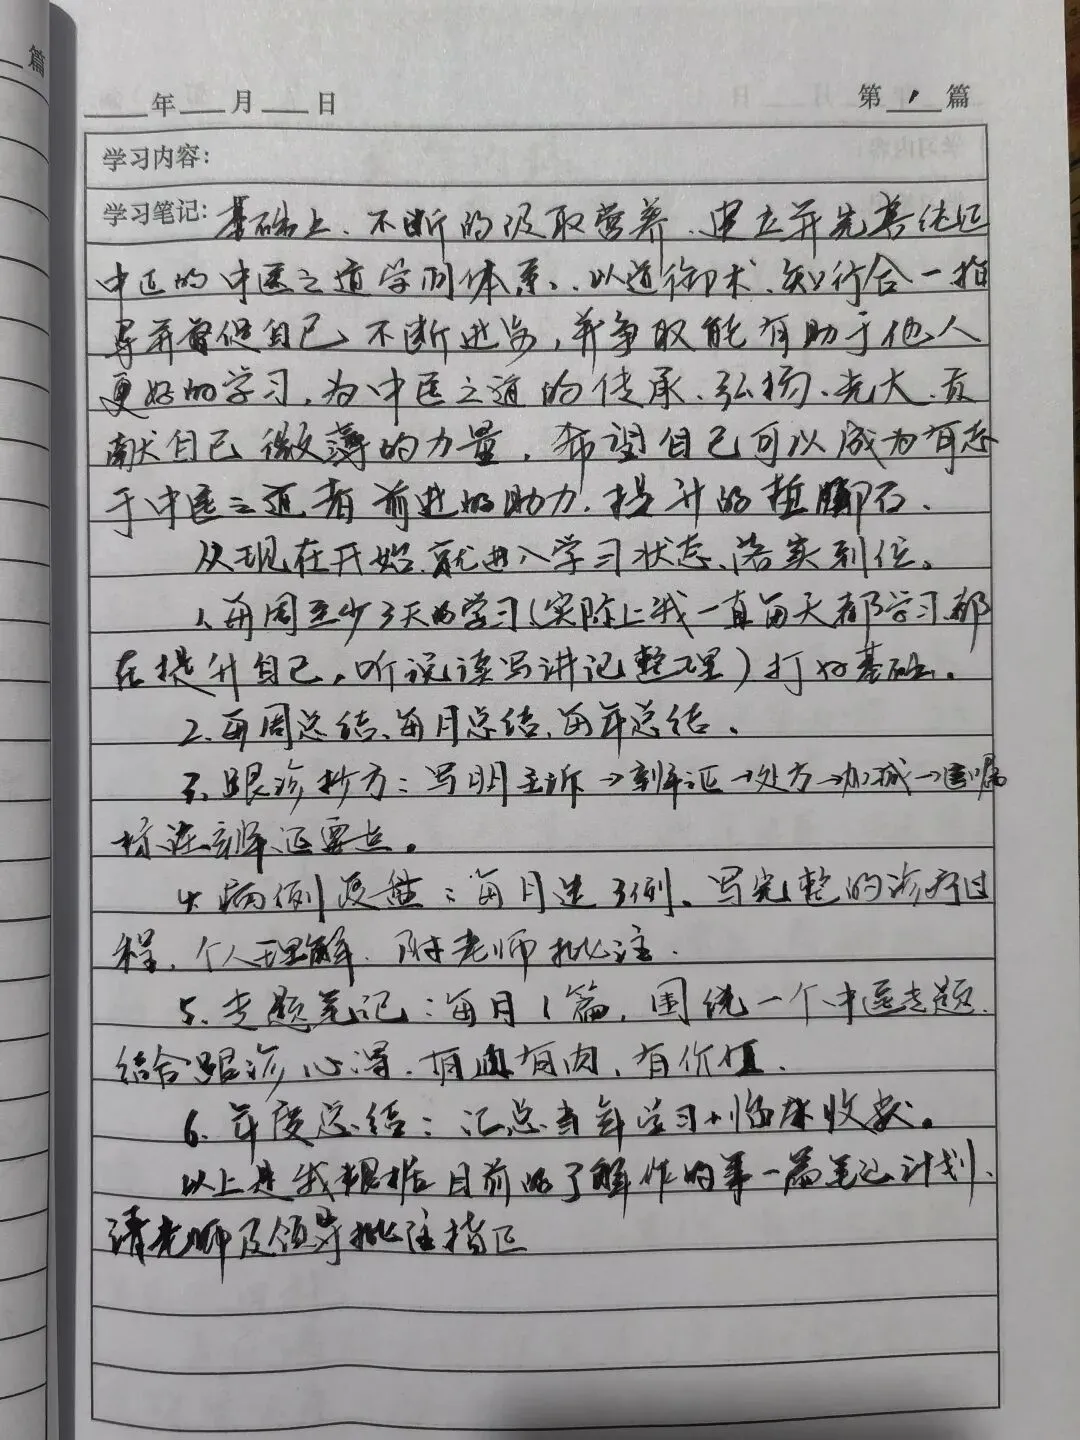 篇
年 月 日 第 1 篇
学习内容：
学习笔记：基础上、不断的汲取营养、建立并完善
中医的中医之道学问体系、以道御术、知行合一指
导并督促自己不断进步，并争取能有助于他人
更好的学习，为中医之道的传承、弘扬、光大、贡
献自己微薄的力量，希望自己可以成为有志
于中医之道者前进的助力、提升的垫脚石、
从现在开始、就进入学习状态、落实到位。
1、每周至少3天的学习（实际上我一直每天都学习、都
在提升自己，听说读写讲记整理）打好基础。
2、每周总结、每月总结、每年总结。
3、跟诊抄方：写明主诉→辨证→处方→加减→医嘱
标注辨证要点。
4、病例复盘：每月选3例、写完整的诊疗过
程、个人理解、附老师批注.
5、专题笔记：每月1篇，围绕一个中医专题、
结合跟诊心得、有血有肉、有价值.
6、年度总结：汇总当年学习+临床收获。
以上是我根据目前的了解作的第一篇笔记计划、
请老师及领导批注指正